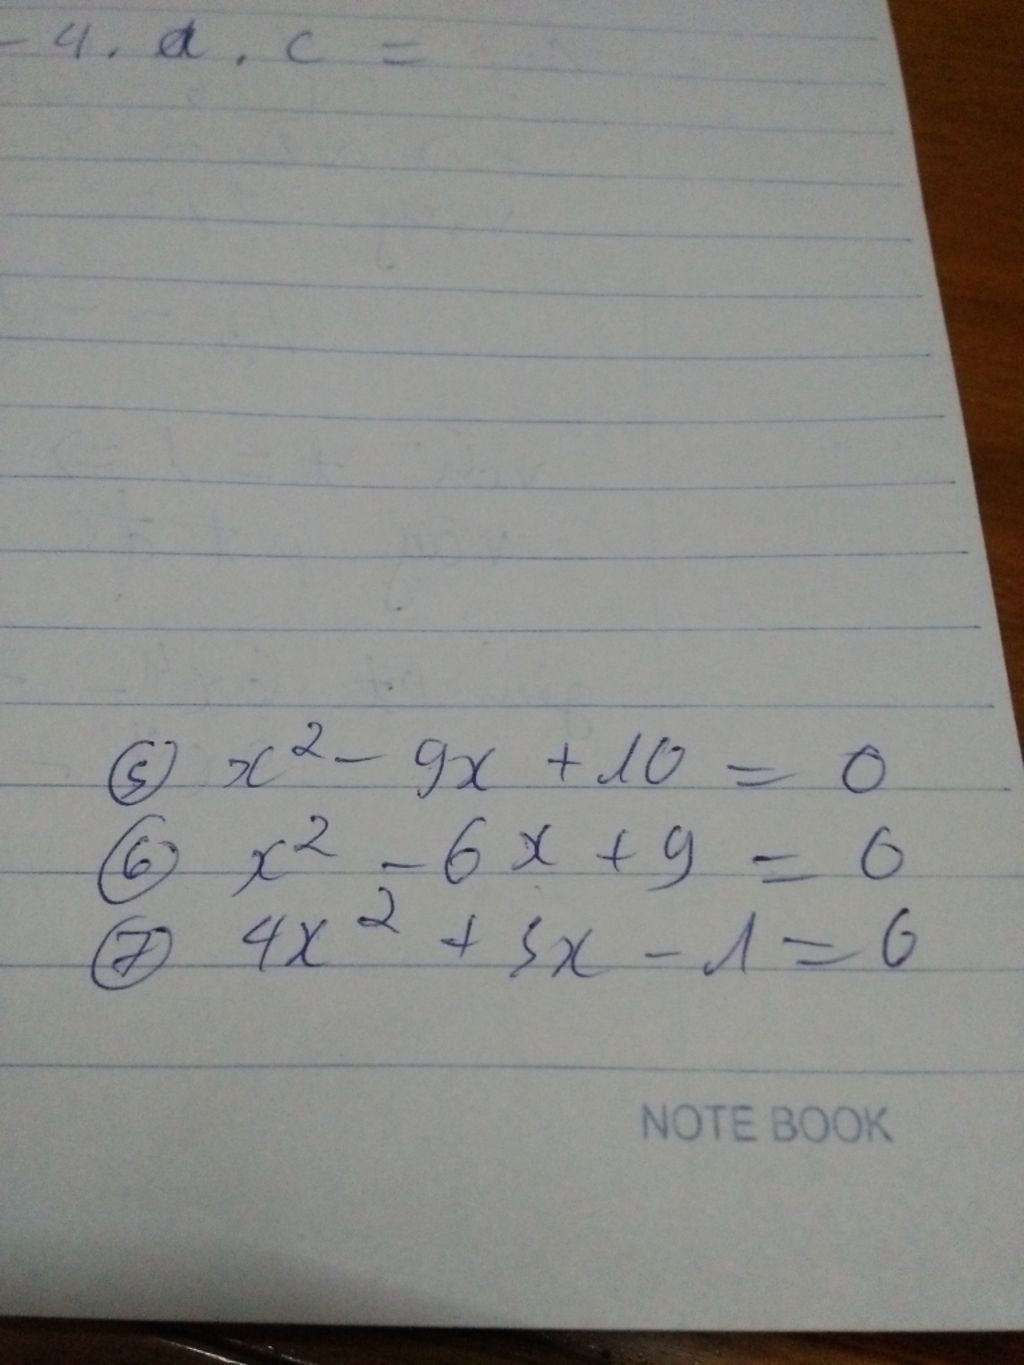 - 4. a. c =
⑤ x² - 9x + 10 = 0
⑥ x² - 6x + 9 = 0
⑦ 4x² + 3x - 1 = 0
NOTE BOOK